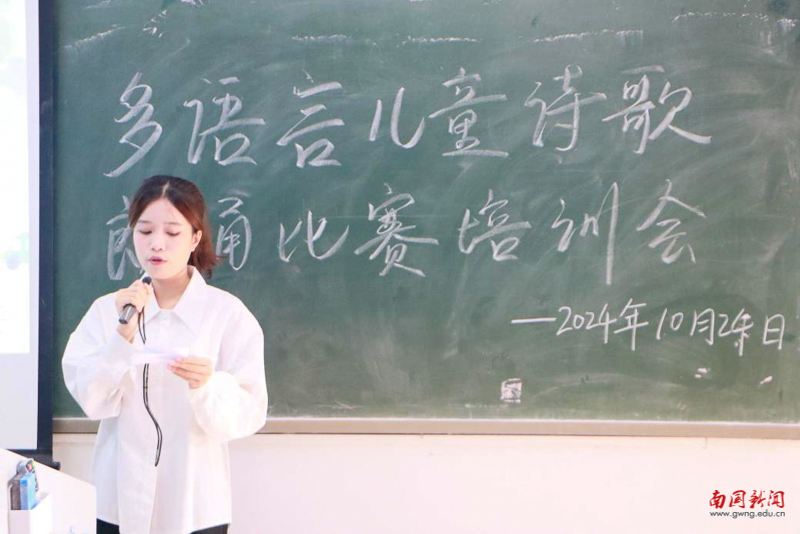 多语言儿童诗歌
朗诵比赛培训会
—2024年10月24日
南国新闻
www.gwng.edu.cn